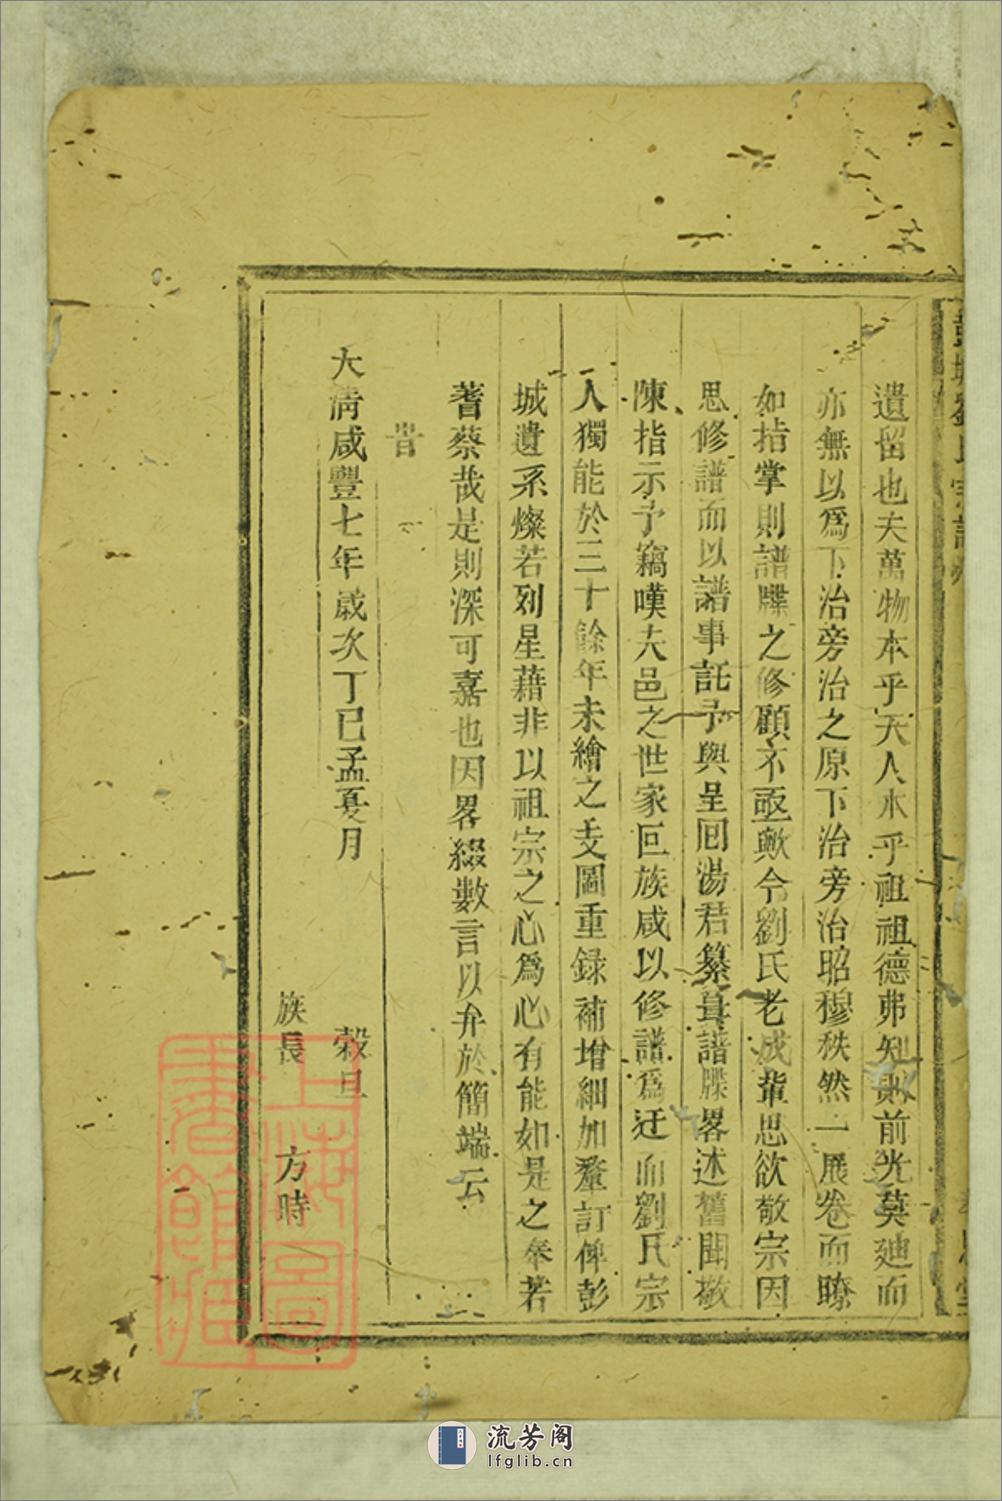 彭城劉氏宗譜
遺留也夫萬物本乎天人本乎祖祖德弗知則前光莫廸而
亦無以爲下治旁治之原下治旁治昭穆秩然一展卷而瞭
如指掌則譜牒之修顧不亟歟今劉氏老成輩思欲敬宗因
思修譜而以譜事託予與呈回湯君纂葺譜牒畧述舊聞敬
陳指示予竊嘆夫邑之世家巨族咸以修譜爲迂而劉氏宗
人獨能於三十餘年未繪之支圖重録補增細加釐訂俾彭
城遺系燦若列星藉非以祖宗之心爲心有能如是之奉若
蓍蔡哉是則深可嘉也因畧綴數言以弁於簡端云
旹
大清咸豐七年歲次丁巳孟夏月 榖旦
族長 方時
上海圖書館藏
流芳阁
lfglib.cn